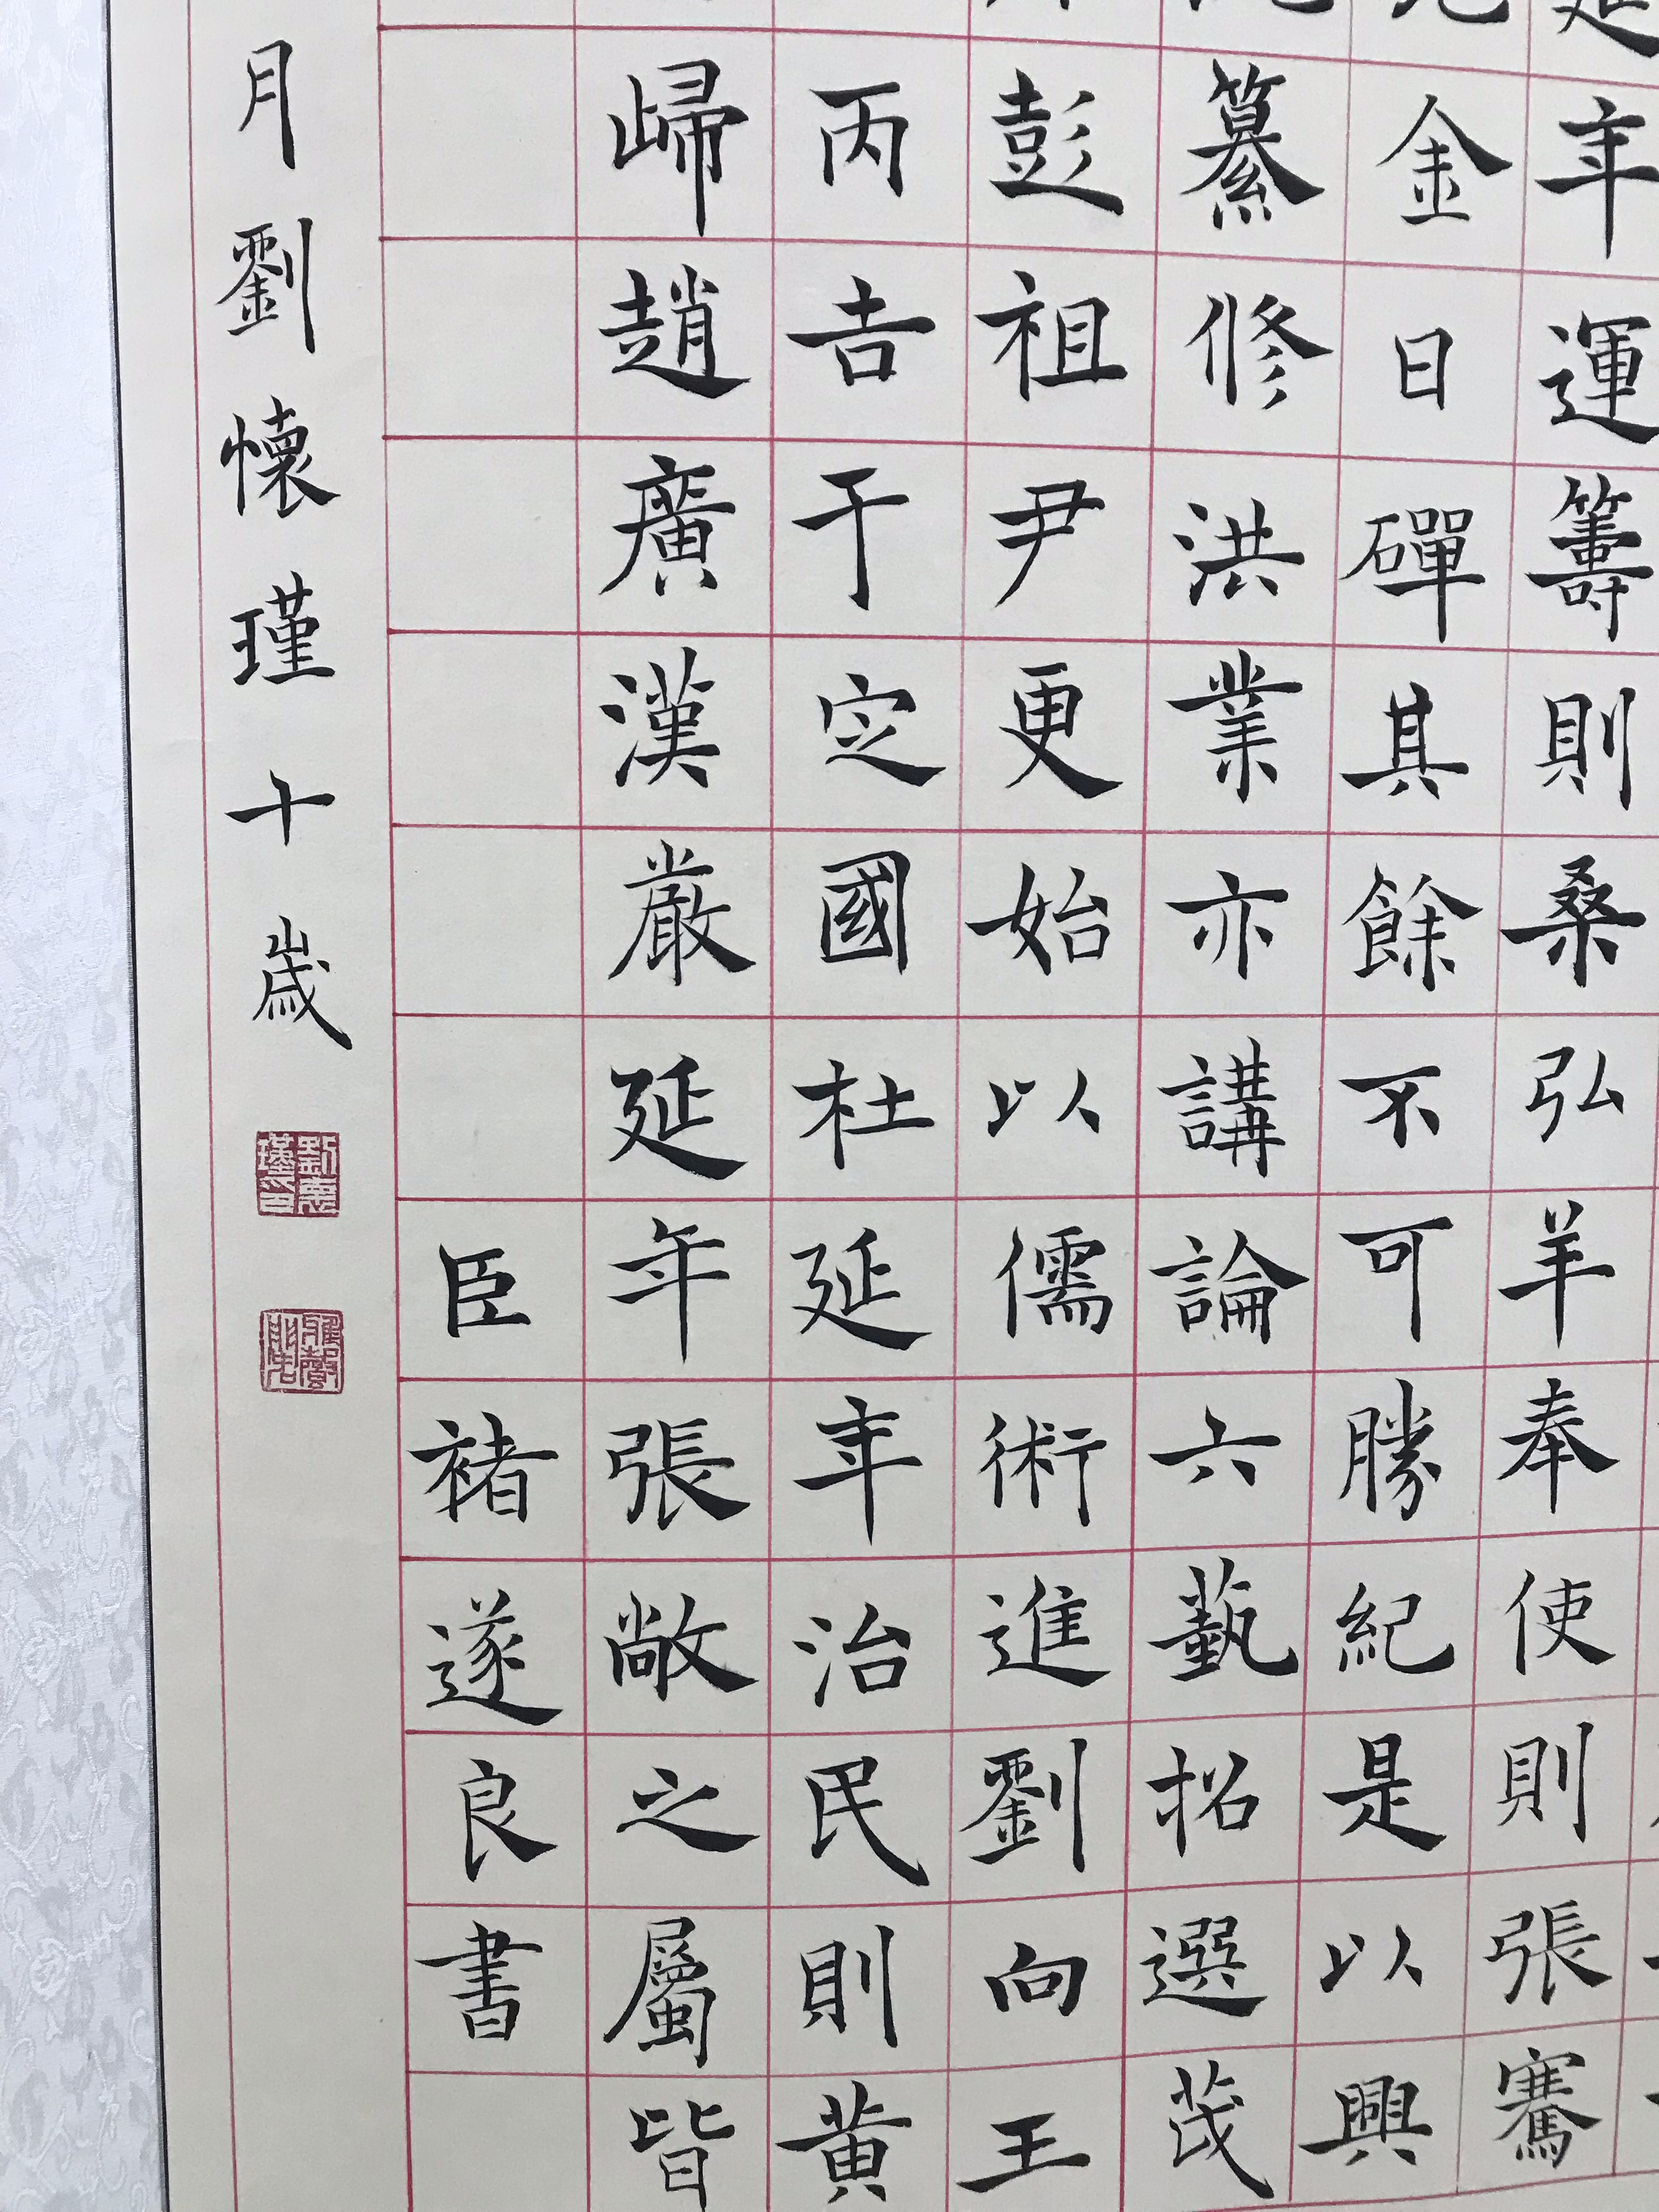 年運籌則桑弘羊奉使則張騫
金日磾其餘不可勝紀是以興
纂修洪業亦講論六藝招選茂
彭祖尹更始以儒術進劉向王
丙吉于定國杜延年治民則黄
歸趙廣漢嚴延年張敞之屬皆
臣褚遂良書
月劉懷瑾十歲
劉懷瑾印